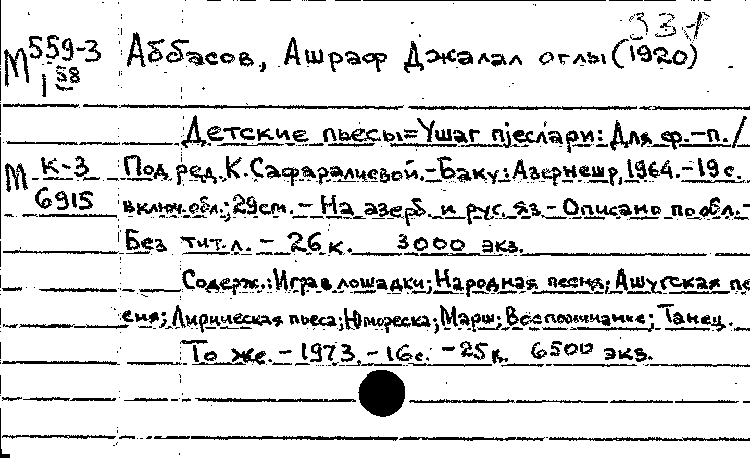 331
М 559-3 Аббасов, Ашраф Джалал оглы (1920)
1 58
Детские пьесы=Ушаг пјеслари: Для ф.-п./
М К-3 Под ред. К. Сафаралиевой.-Баку: Азернешр, 1964.-19 с.
6915 включ. обл.; 29 см. - На азерб. и рус. яз - Описано по обл.-
Без тит. л. - 26 к. 3000 экз.
Содерж.: Игра в лошадки; Народная песня; Ашугская пе
сня; Лирическая пьеса; Юмореска; Марш; Воспоминание; Танец.
То же. - 1973. - 16 с. - 25 к. 6500 экз.